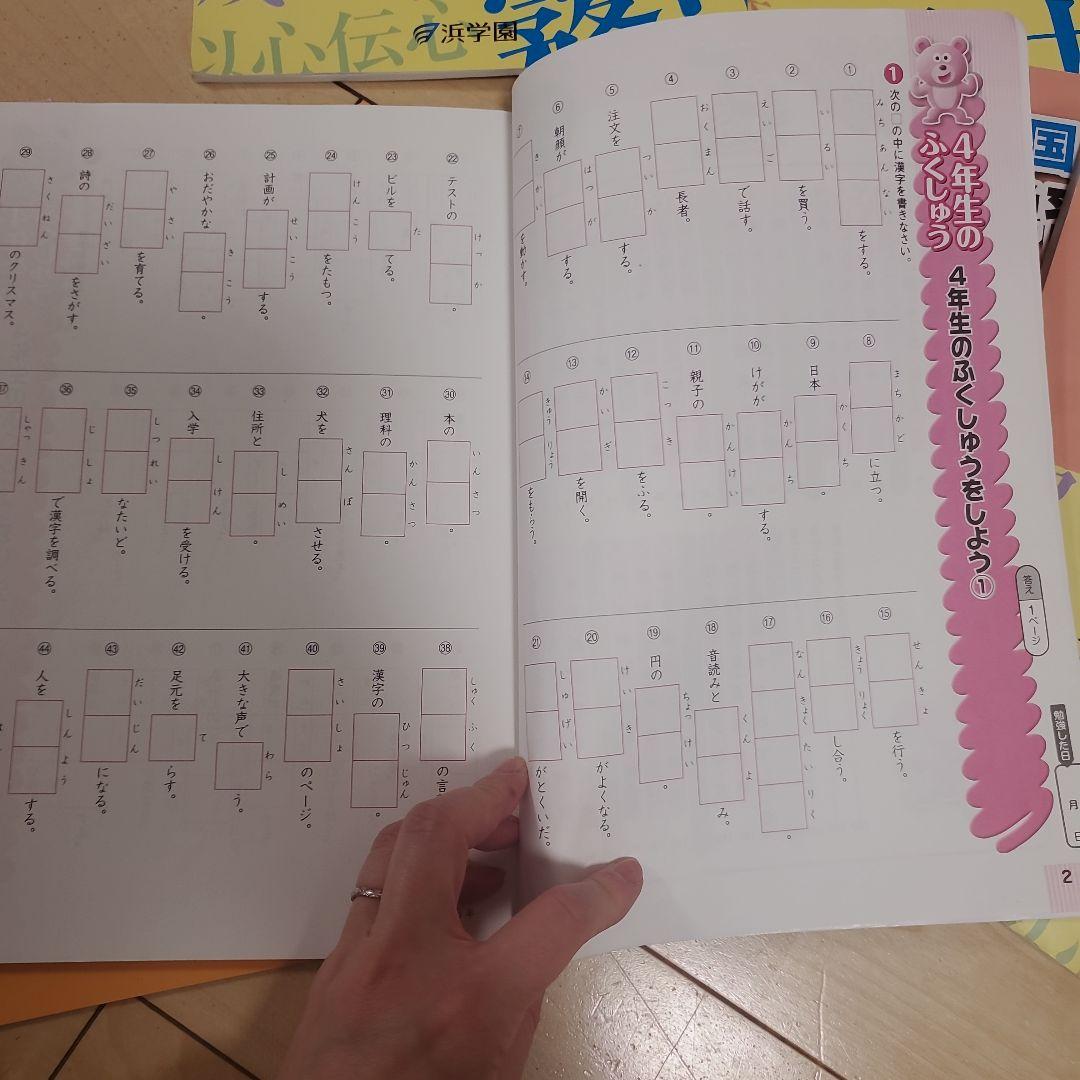 浜学園
以心伝心
国
4年生の
ふくしゅう
4年生のふくしゅうをしよう①
答え 1ページ
勉強した日
月
日
2
1 次の□の中に漢字を書きなさい。
① みちあんない をする。
② いるい を買う。
③ えいご で話す。
④ おくまん 長者。
⑤ 注文を ついか する。
⑥ 朝顔が はつが する。
⑦ きかい を動かす。
⑧ まちかど に立つ。
⑨ 日本 かくち 。
⑩ けがが かんち する。
⑪ 親子の かんけい 。
⑫ こっき をふる。
⑬ かいぎ を開く。
⑭ きゅうりょう をもらう。
⑮ せんきょ を行う。
⑯ きょうりょく し合う。
⑰ なんきょくたいりく 。
⑱ 音読みと くんよ み。
⑲ 円の ちょっけい 。
⑳ けいき がよくなる。
㉑ しゅげい がとくいだ。
㉒ テストの けっか 。
㉓ ビルを た てる。
㉔ けんこう をたもつ。
㉕ 計画が せいこう する。
㉖ おだやかな きこう 。
㉗ やさい を育てる。
㉘ 詩の だいざい をさがす。
㉙ さくねん のクリスマス。
㉚ 本の いんさつ 。
㉛ 理科の かんさつ 。
㉜ 犬を さんぽ させる。
㉝ 住所と しめい 。
㉞ 入学 しけん を受ける。
㉟ しつれい なたいど。
㊱ じしょ で漢字を調べる。
㊲ しゃっきん
㊳ しゅくふく の言
㊴ 漢字の ひつじゅん 。
㊵ さいしょ のページ。
㊶ 大きな声で わら う。
㊷ 足元を て らす。
㊸ だいじん になる。
㊹ 人を しんよう する。